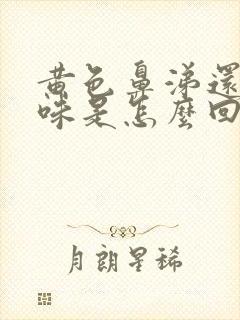 黄色鼻涕還
味是怎麼回
月朗星稀